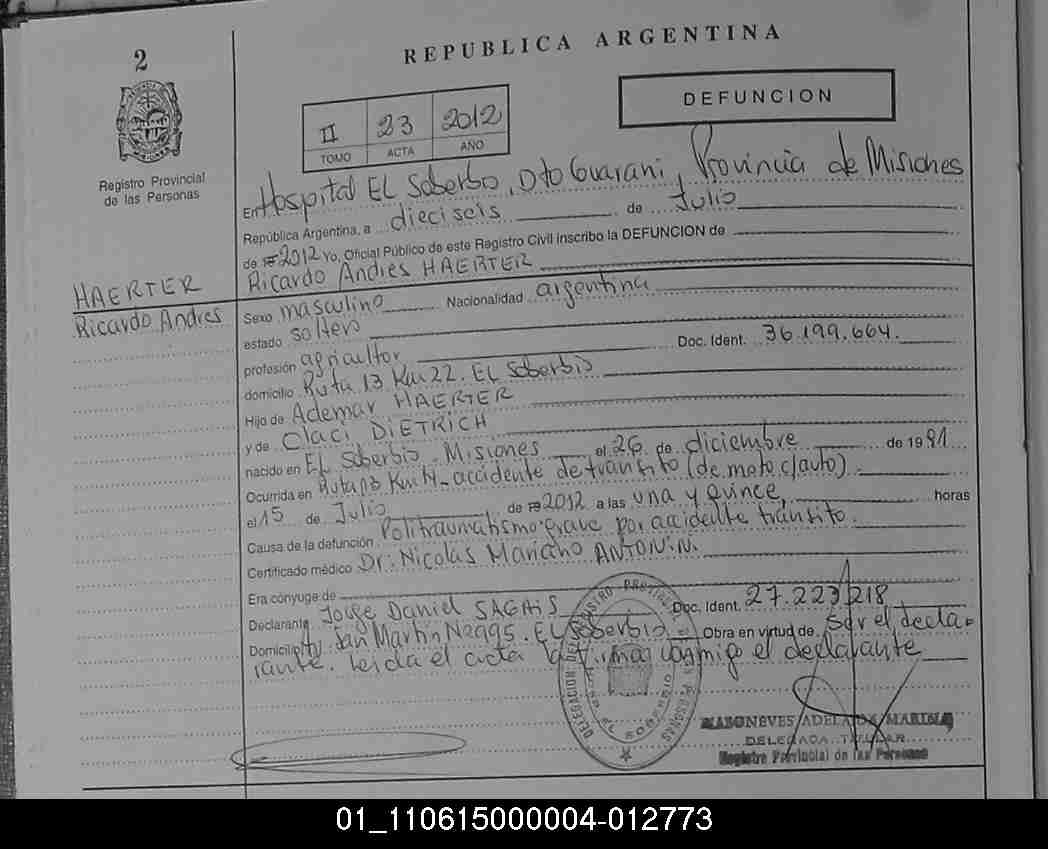 2
REPUBLICA ARGENTINA
DEFUNCION
II 23 2012
TOMO ACTA AÑO
Registro Provincial
de las Personas
En Hospital EL Soberbio, Dto Guarani, Provincia de Misiones
República Argentina, a dieciseis de Julio
de 2012 Yo, Oficial Público de este Registro Civil inscribo la DEFUNCION de
HAERTER
Ricardo Andres
Ricardo Andres HAERTER
Sexo masculino Nacionalidad argentina
estado soltero
profesión agricultor Doc. Ident. 36.199.664.
domicilio Ruta 13 Km 22. EL Soberbio
Hijo de Ademar HAERTER
y de Claci, DIETRICH
nacido en EL Soberbio - Misiones el 26 de diciembre de 1991
Ocurrida en Ruta 13 Km accidente de transito (de moto c/auto).
el 15 de Julio de 2012 a las una y quince, horas
Causa de la defunción Politraumatismo grave por accidente tránsito.
Certificado médico Dr. Nicolas Mariano ANTONINI.
Era cónyuge de
Declarante Jorge Daniel SAGAIS Doc. Ident. 27.223.218
Domicilio Av. San Martin N° EL Soberbio Obra en virtud de ser el decla-
rante. Leida el acta la firma conmigo el declarante
MASONEVES ADELAIDA MARINA
DELEGADA TITULAR
Registro Provincial de las Personas
01_110615000004-012773